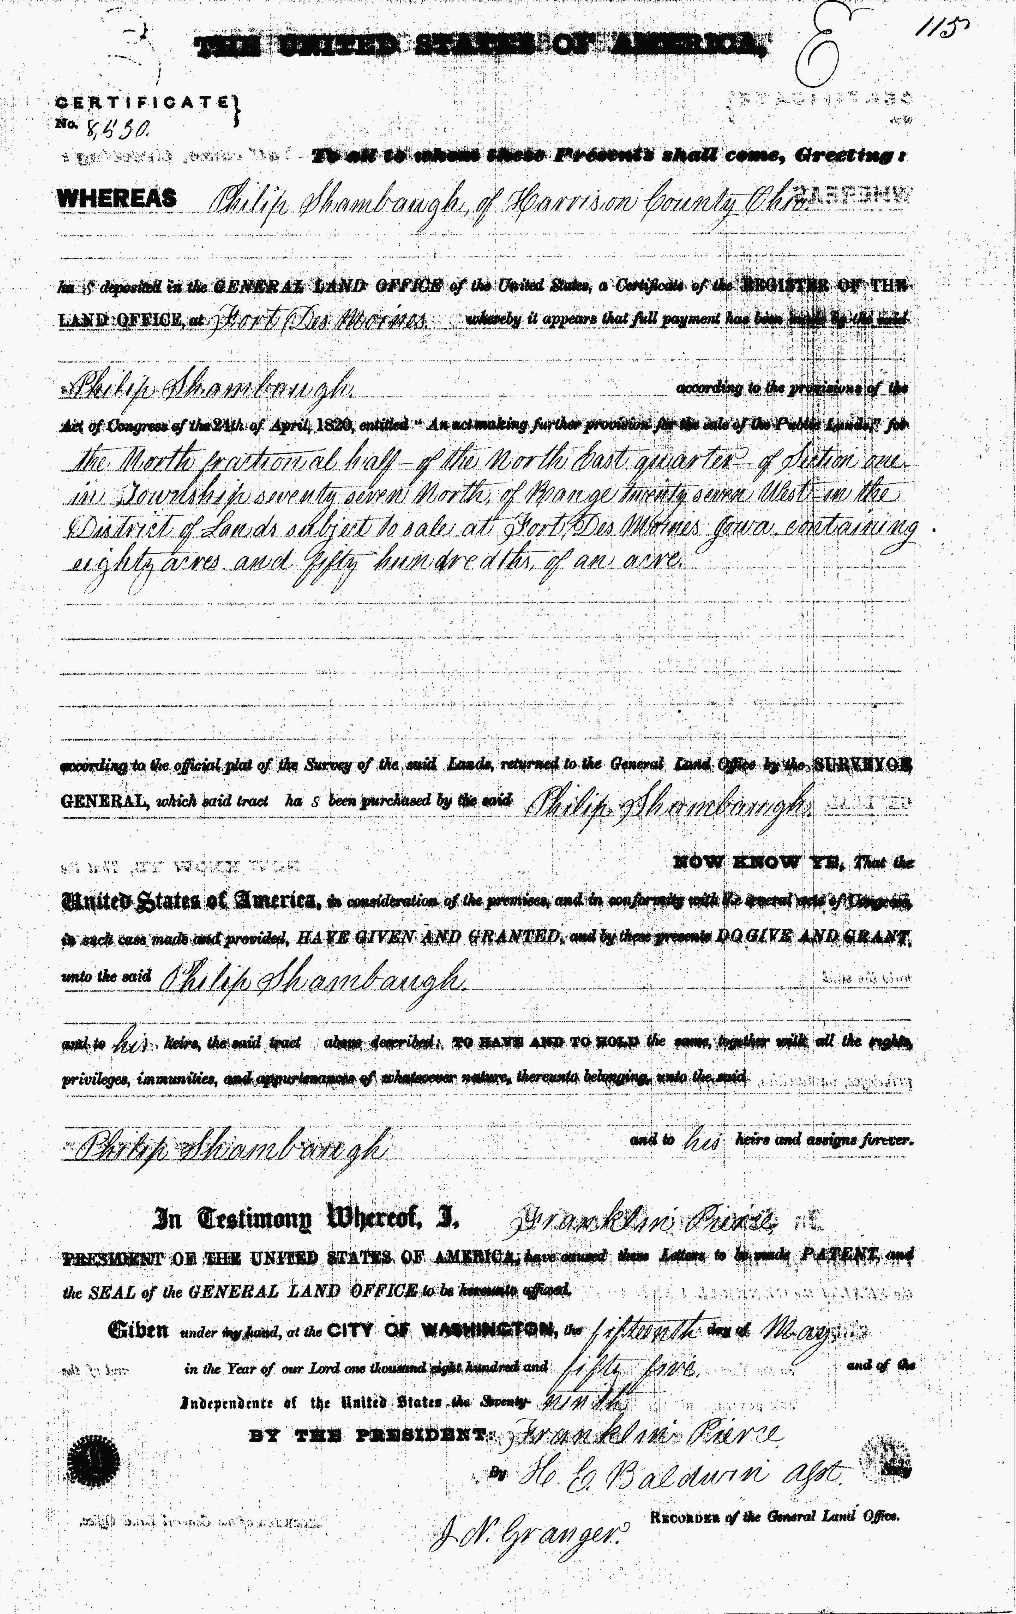 115
E
THE UNITED STATES OF AMERICA,
CERTIFICATE}
No. 8,530.
To all to whom these Presents shall come, Greeting:
WHEREAS Philip Shambaugh, of Harrison County Ohio.
ha s deposited in the GENERAL LAND OFFICE of the United States, a Certificate of the REGISTER OF THE
LAND OFFICE, at Fort Des Moines. whereby it appears that full payment has been made by the said
Philip Shambaugh. according to the provisions of the
Act of Congress of the 24th of April, 1820, entitled "An act making further provision for the sale of the Public Lands," for
the North fractional half of the North East quarter of Section one
in Township seventy seven North, of Range twenty seven West in the
District of Lands subject to sale at Fort Des Moines Iowa, containing
eighty acres and fifty hundredths of an acre.
according to the official plat of the Survey of the said Lands, returned to the General Land Office by the SURVEYOR
GENERAL, which said tract ha s been purchased by the said Philip Shambaugh.
NOW KNOW YE, That the
United States of America, in consideration of the premises, and in conformity with the several acts of Congress,
in such case made and provided, HAVE GIVEN AND GRANTED, and by these presents DO GIVE AND GRANT,
unto the said Philip Shambaugh.
and to his heirs, the said tract above described: TO HAVE AND TO HOLD the same, together with all the rights,
privileges, immunities, and appurtenances of whatsoever nature, thereunto belonging, unto the said
Philip Shambaugh and to his heirs and assigns forever.
In Testimony Whereof, I, Franklin Pierce
PRESIDENT OF THE UNITED STATES OF AMERICA, have caused these Letters to be made PATENT, and
the SEAL of the GENERAL LAND OFFICE to be hereunto affixed.
Given under my hand, at the CITY OF WASHINGTON, the fifteenth day of May
in the Year of our Lord one thousand eight hundred and fifty five. and of the
Independence of the United States the Seventy-ninth
BY THE PRESIDENT: Franklin Pierce
By H. E. Baldwin Asst. Sec'y
J. N. Granger. RECORDER of the General Land Office.